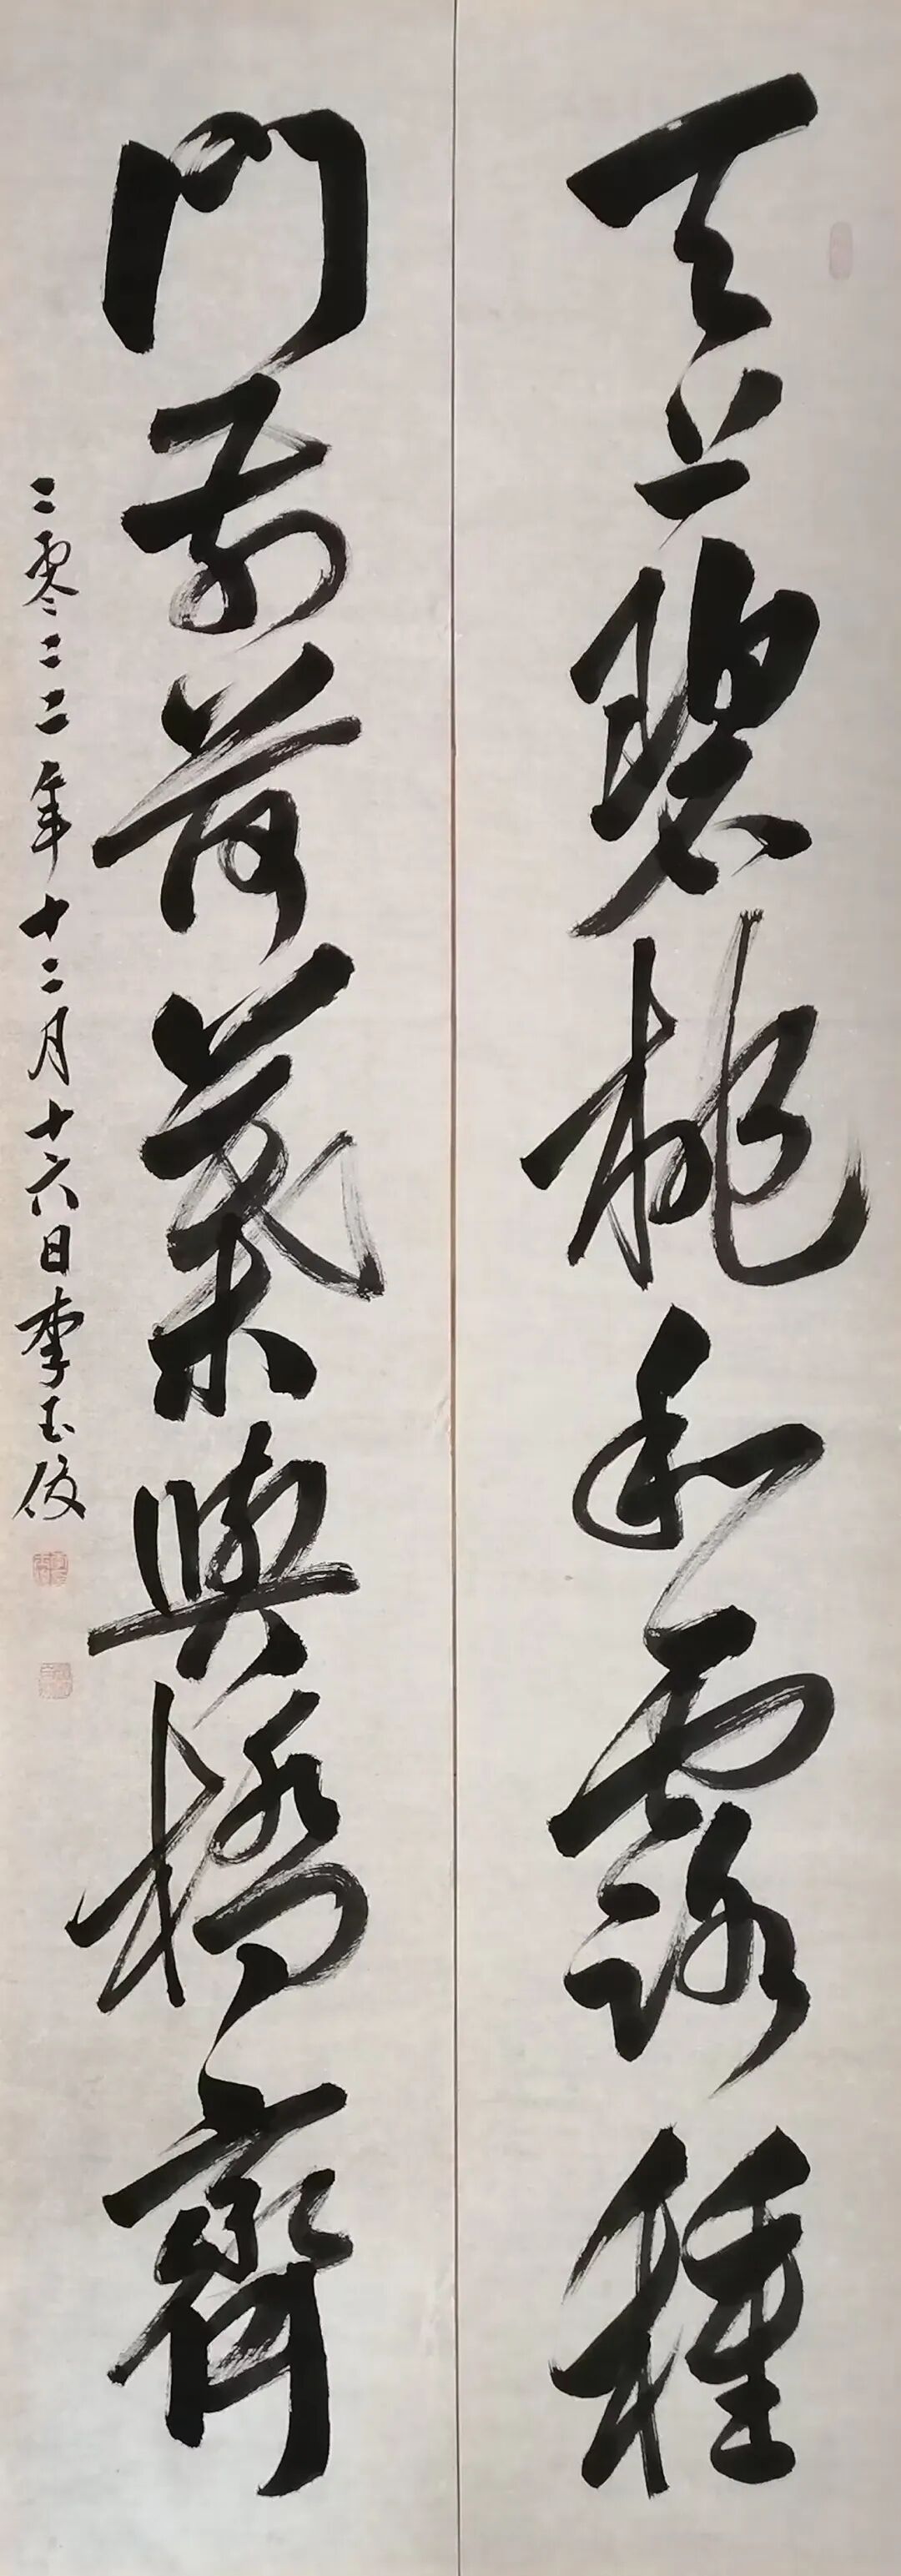 天上碧桃和露種
門前荷葉與橋齊
二零二二年十二月十六日李玉俊